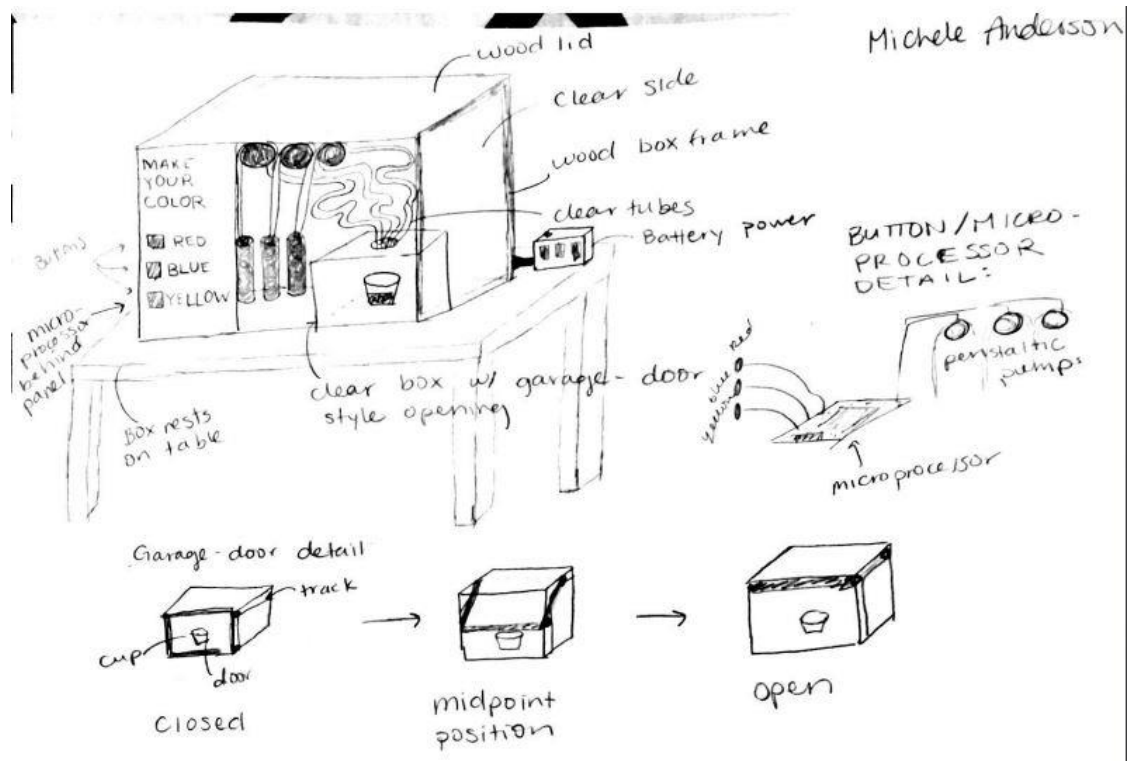 Michele Anderson
wood lid
Clear side
wood box frame
clear tubes
Battery power
MAKE
YOUR
COLOR
RED
BLUE
YELLOW
Buttons
micro-
processor
behind
panel
Box rests
on table
clear box w/ garage-door
style opening
BUTTON/MICRO-
PROCESSOR
DETAIL:
red
blue
yellow
peristaltic
pumps
microprocessor
Garage-door detail
track
cup
door
closed
midpoint
position
open